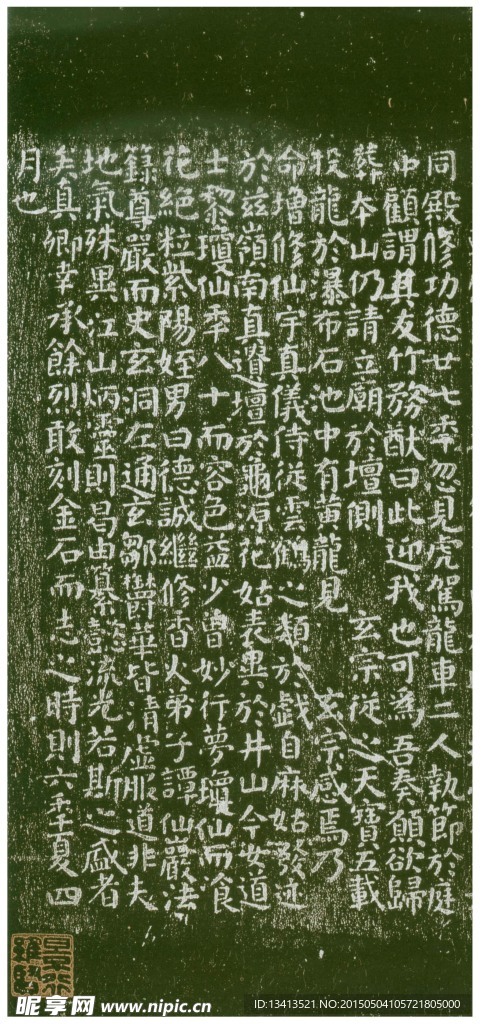 同殿修功德廿七年忽見虎駕龍車二人執節於庭
中顧謂其友竹務猷曰此迎我也可為吾奏願欲歸
葬本山仍請立廟於壇側 玄宗從之天寶五載
投龍於瀑布石池中有黃龍見 玄宗感焉乃
命增修仙宇真儀侍從雲鶴之類於戲自麻姑發迹
於茲嶺南真遺壇於龜源花姑表異於井山今女道
士黎瓊仙年八十而容色益少曾妙行夢瓊仙而飡
花絕粒紫陽姪男曰德誠繼修香火弟子譚仙巖法
籙尊嚴而史玄洞左通玄鄒鬱華皆清虛服道非夫
地氣殊異江山炳靈則曷由纂懿流光若斯之盛者
矣真卿幸承餘烈敢刻金石而志之時則六年夏四
月也
昵享网 www.nipic.cn
ID:13413521 NO:20150504105721805000